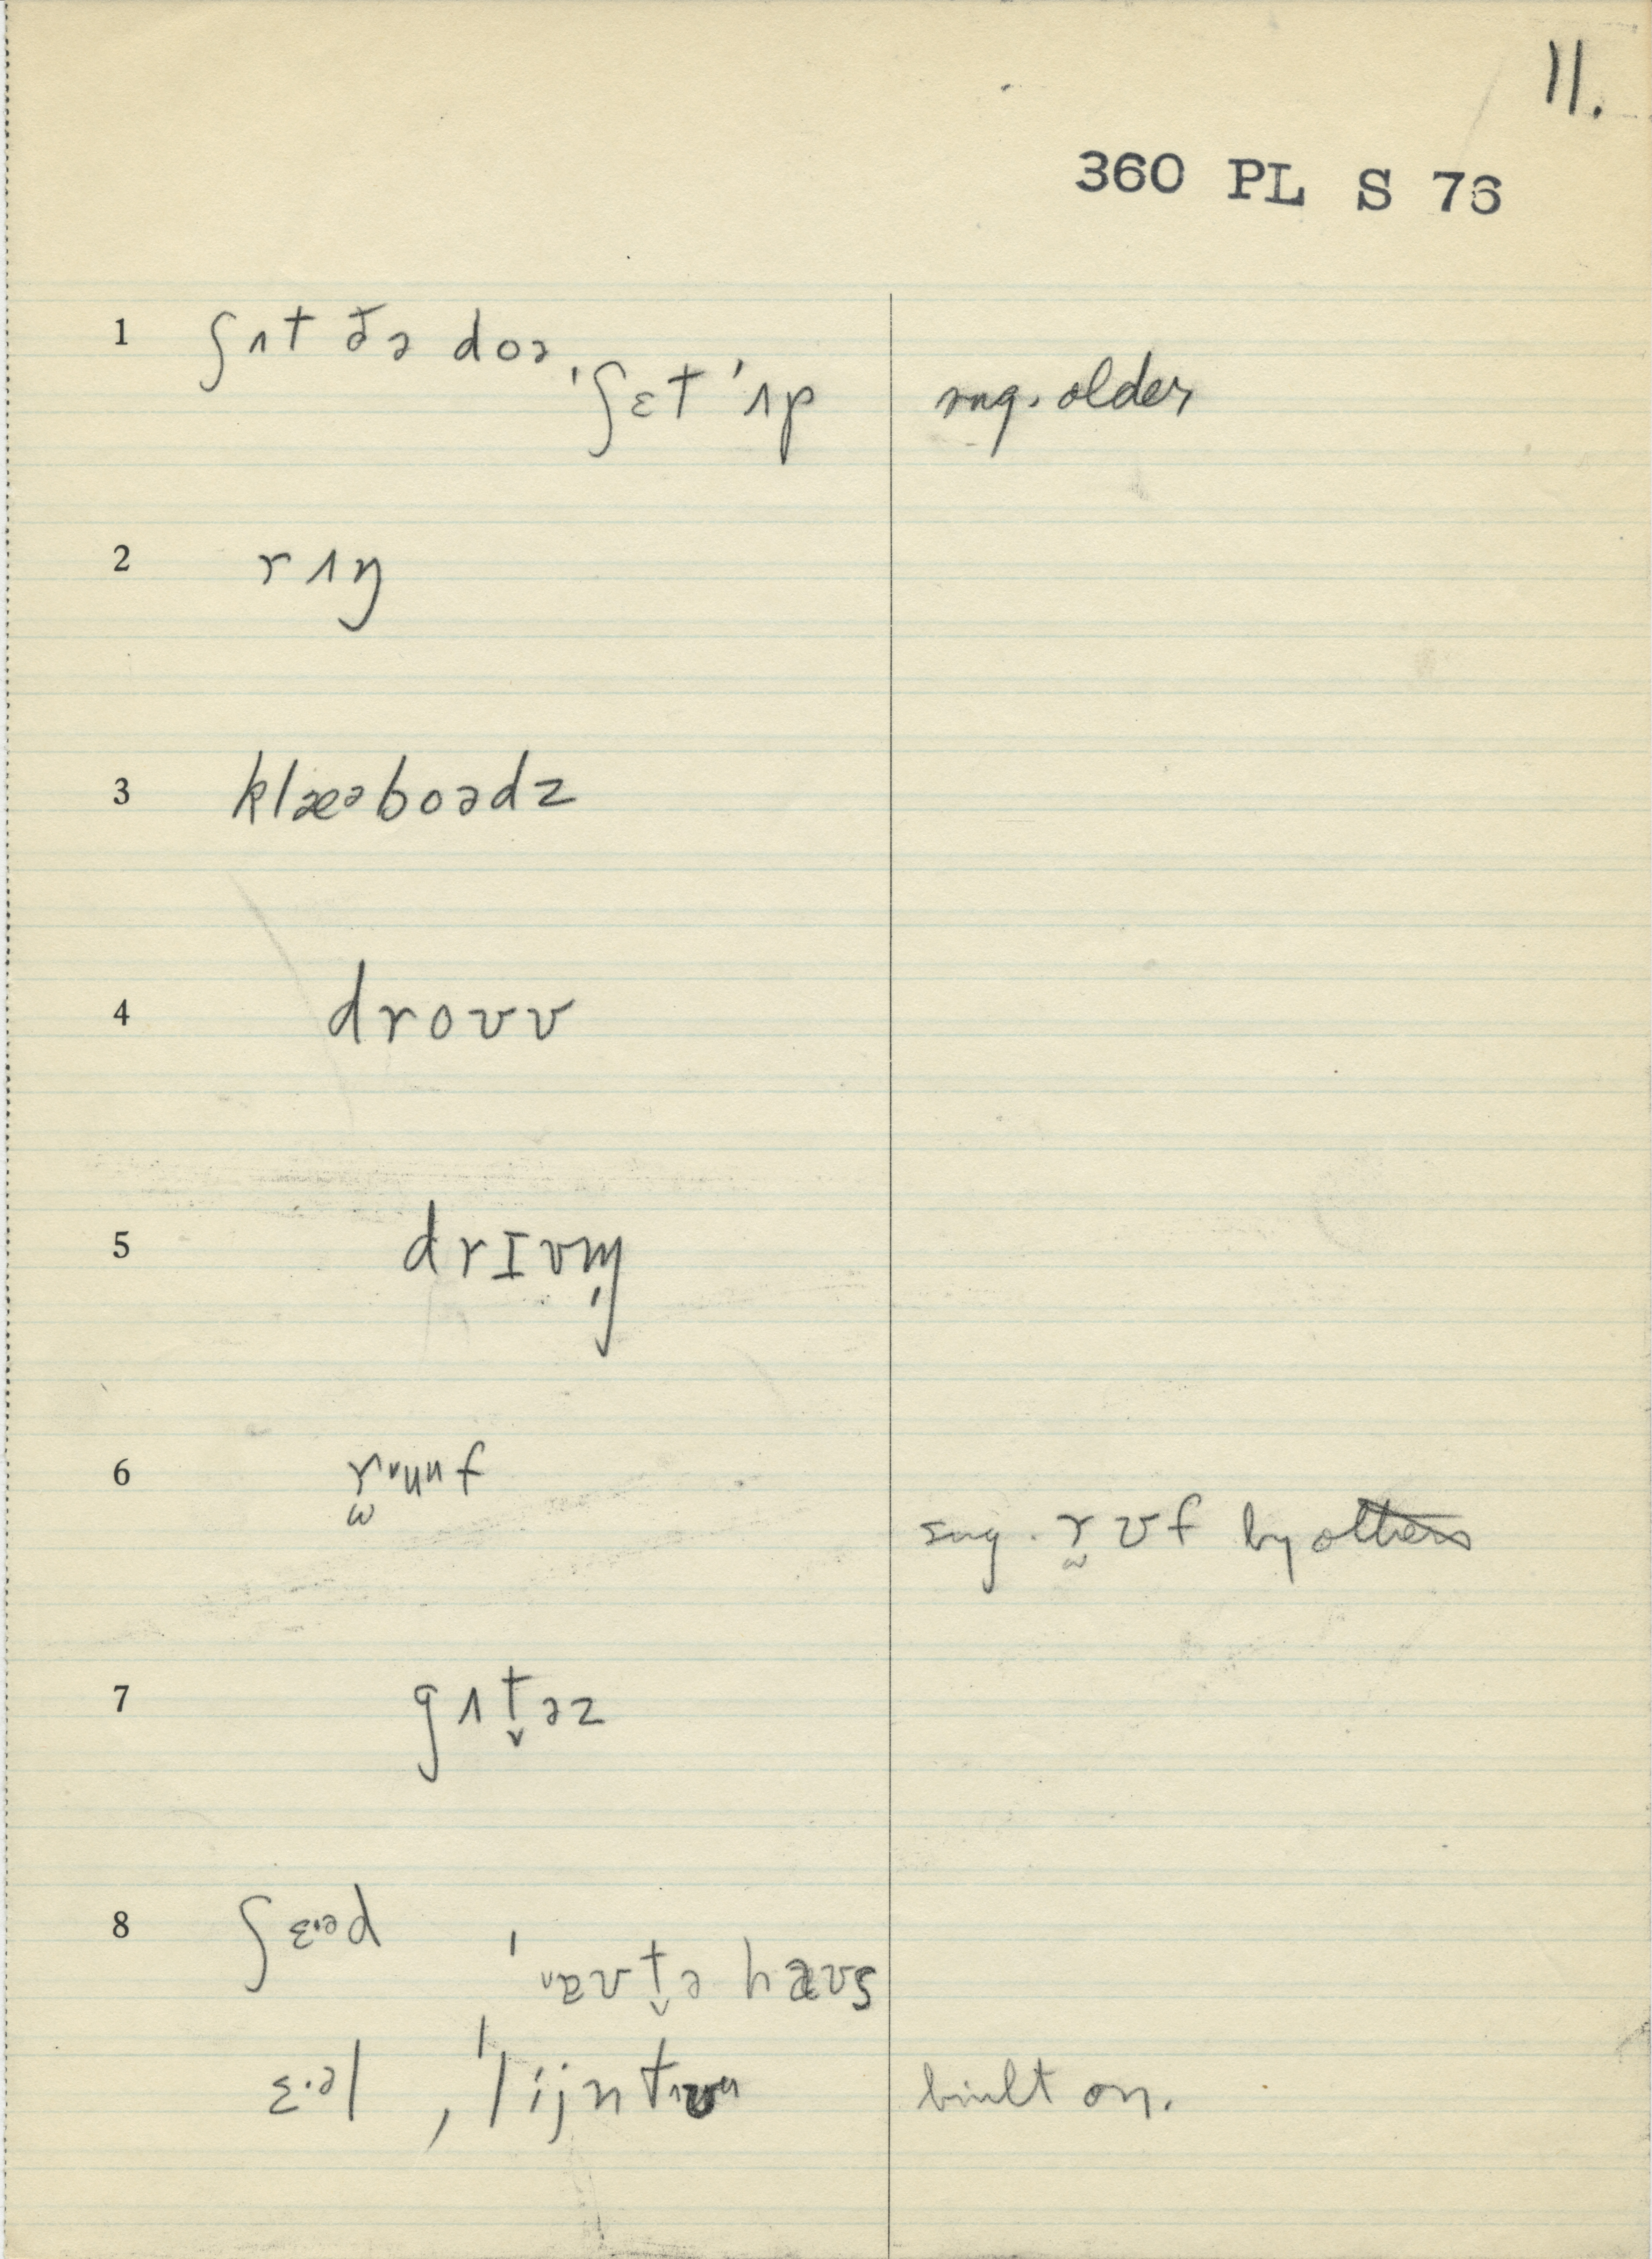 11.
360 PL S 76
1 ʃʌt ðə doə,
ˈʃɛt ˈʌp sug. older
2 rʌŋ
3 klæᵊboədz
4 droʊv
5 drɪvm̩
6 r̫ʊuuf
sug. r̫ʊf by others
7 gʌt̬əz
8 ʃɛ·ᵊd
ˈaʊt̬ə haʊs
ɛ·əl, ˈlijntʊu built on.